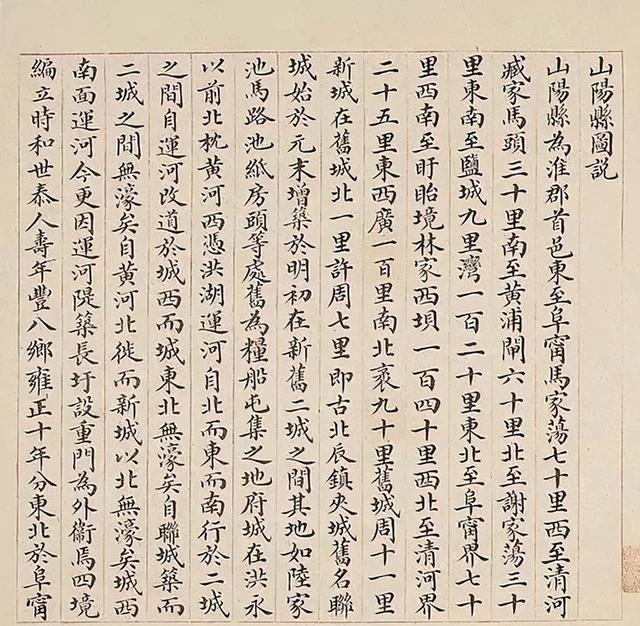 山陽縣圖説
山陽縣為淮郡首邑東至阜甯馬家蕩七十里西至清河
臧家馬頭三十里南至黃浦閘六十里北至謝家蕩三十
里東南至鹽城九里灣一百二十里東北至阜甯界七十
里西南至盱眙境林家西壩一百四十里西北至清河界
二十五里東西廣一百里南北袤九十里舊城周十一里
新城在舊城北一里許周七里即古北辰鎮夾城舊名聯
城始於元末增築於明初在新舊二城之間其地如陸家
池馬路池紙房頭等處舊為糧船屯集之地府城在洪永
以前北枕黃河西憑洪湖運河自北而東而南行於二城
之間自運河改道於城西而城東北無濠矣自聯城築而
二城之間無濠矣自黃河北徙而新城以北無濠矣城西
南面運河今更因運河隄築長圩設重門為外衞焉四境
編立時和世泰人壽年豐八鄉雍正十年分東北於阜甯